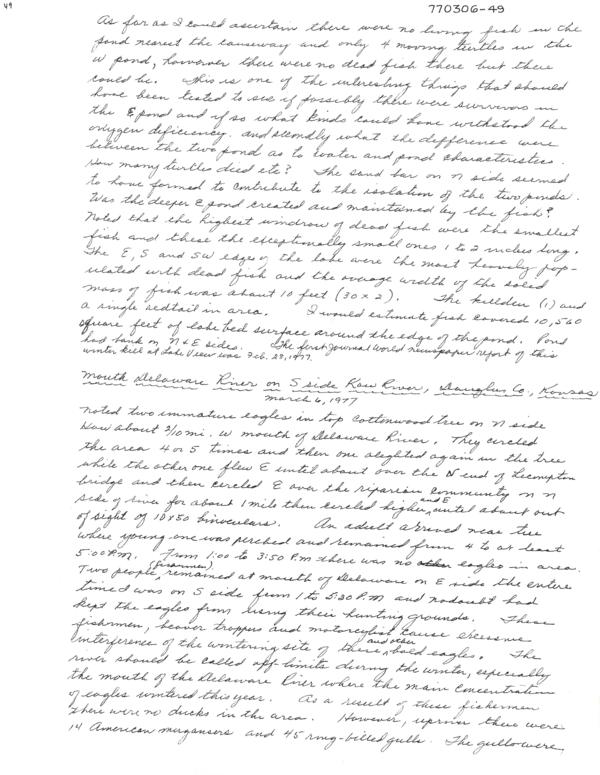 49
770306-49
As far as I could ascertain there were no living fish in the
pond nearest the causeway and only 4 moving turtles in the
W pond, however there were no dead fish there but there
could be. This is one of the interesting things that should
have been tested to see if possibly there were survivors in
the E pond and if so what kinds could have withstood the
oxygen deficiency. and secondly what the difference were
between the two pond as to water and pond characteristics.
How many turtles died etc? The sand bar on N side seemed
to have formed to contribute to the isolation of the two ponds.
Was the deeper E pond created and maintained by the fish?
Noted that the highest windrow of dead fish were the smallest
fish and these the exceptionally small ones 1 to 2 inches long.
The E, S and SW edges of the lake were the most heavily pop-
ulated with dead fish and the average width of the solid
mass of fish was about 10 feet (30 x 2). The killdeer (1) and
a single redtail in area. I would estimate fish covered 10,560
square feet of lake bed surface around the edge of the pond. Pond
had bank on N & E sides. The first Journal World newspaper report of this
winter kill at Lake View was Feb. 28, 1977.
Mouth Delaware River on S side Kaw River, Douglas Co., Kansas
March 6, 1977
Noted two immature eagles in top cottonwood tree on N side
Kaw about 3/10 mi. W mouth of Delaware River. They circled
the area 4 or 5 times and then one alighted again in the tree
while the other one flew E until about over the N end of Lecompton
bridge and then circled E over the riparian community on N
side of river for about 1 mile then circled higher and E until about out
of sight of 10x50 binoculars. An adult arrived near tree
where young one was perched and remained from 4 to at least
5:00 P.M. From 1:00 to 3:50 P.M there was no other eagles in area.
Two people (fishermen) remained at mouth of Delaware on E side the entire
time I was on S side from 1 to 5:20 P.M and nodoubt had
kept the eagles from using their hunting grounds. These
fishermen, beaver trappers and motorcyclist cause excessive
interference of the wintering site of these and other bald eagles. The
river should be called off limits during the winter, especially
the mouth of the Delaware River where the main concentration
of eagles wintered this year. As a result of these fishermen
there were no ducks in the area. However, upriver there were
14 American mergansers and 45 ring-billed gulls. The gulls were